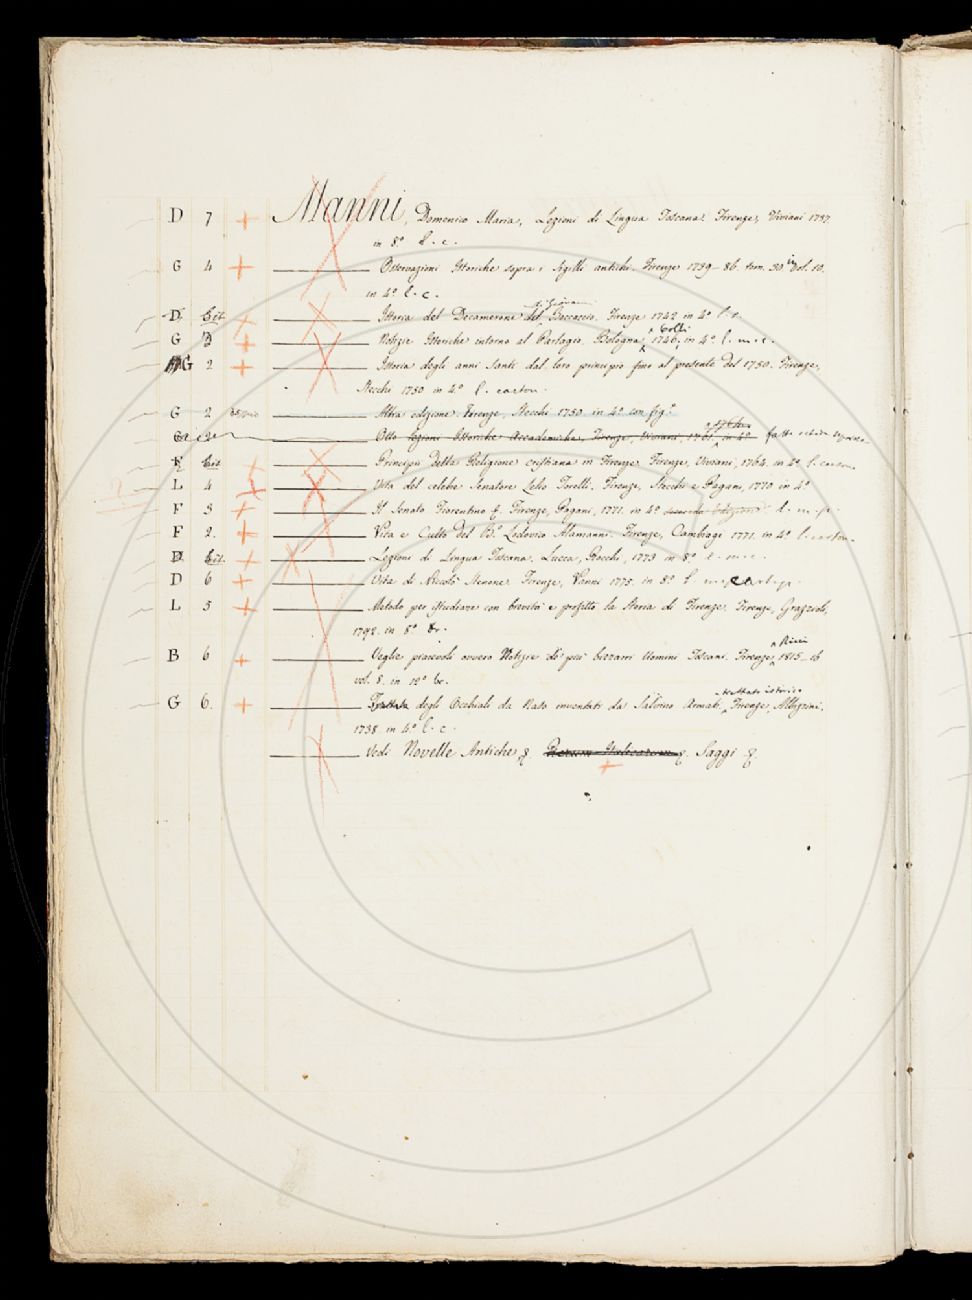 D 7 + Manni, Domenico Maria, Lezioni di Lingua Toscana. Firenze, Viviani 1737
in 8.º l. c.
G 4 + Osservazioni Istoriche sopra i Sigilli antichi. Firenze 1739-86. tom. 30 in vol. 10.
in 4º l. c.
D. + Istoria del Decamerone di Giovanni Boccaccio. Firenze 1742 in 4º
G 3 + Notizie Istoriche intorno al Parlagio. Bologna, 1746, in 4º l. m. c.
G 2 + Istoria degli anni Santi dal loro principio fino al presente del 1750. Firenze,
Stecchi 1750 in 4º l. carton.
G 2 Altra edizione. Firenze, Stecchi 1750 in 4º con fig.e
G 2 Otto Lezioni Istoriche Accademiche, Firenze, Viviani, 1761, in 4º
F + Principii della Religione cristiana in Firenze. Firenze, Viviani, 1764. in 4º l. carton.
L 4 + Vita del celebre Senatore Lelio Torelli. Firenze, Stecchi e Pagani, 1770 in 4º
F 3 + Il Senato Fiorentino &. Firenze, Pagani, 1771. in 4º seconda Edizione
F 2. + Vita e Culto del B.º Lodovico Alamanni. Firenze, Cambiagi 1771. in 4º l. carton.
D. + Lezioni di Lingua Toscana. Lucca, Rocchi, 1773 in 8º l. m. c.
D 6 + Vita di Niccolò Stenone. Firenze, Vanni 1775. in 8º
L 5 + Metodo per istudiare con brevità e profitto la Storia di Firenze. Firenze, Grazioli,
1792. in 8º br.
B 6 + Veglie piacevoli ovvero Notizie de' più bizzarri Uomini Toscani. Firenze, Ricci 1815-16
vol. 8. in 12º br.
G 6. + degli Occhiali da Naso inventati da Salvino Armati, trattato istorico Firenze, Albizzini.
1738. in 4º l. c.
Vedi Novelle Antiche, &. Rerum Italicarum &. Saggi &.
+